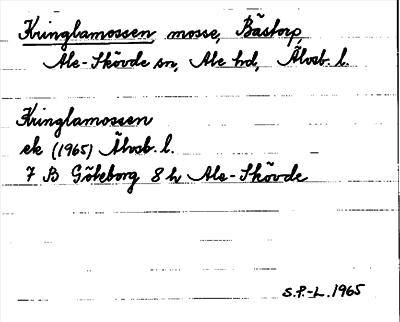 Kringlamossen, mosse, Båstorp,
Ale-Skövde sn, Ale hd, Älvsb. l.
Kringlamossen
ek (1965) Älvsb. l.
7 B Göteborg 8 h Ale-Skövde
S.P.-L. 1965